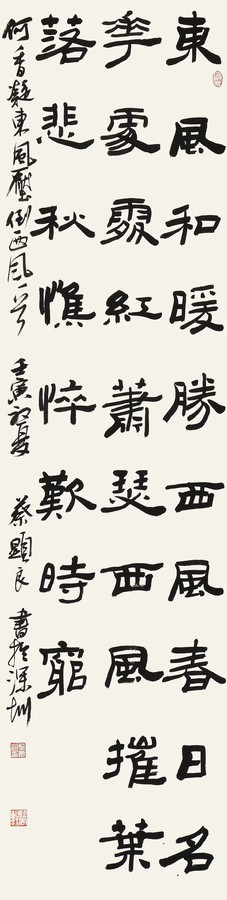 東風和暖勝西風春日名
華處處紅蕭瑟西風摧葉
落悲秋憔悴歎時窮
何香凝東風壓倒西風一首 壬寅初夏 蔡顯良 書於深圳